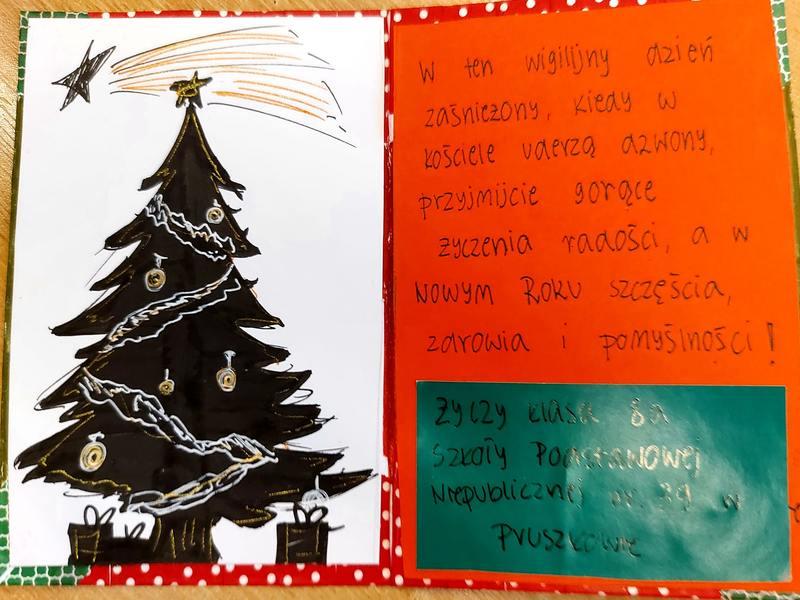 W ten wigilijny dzień
zaśnieżony, kiedy w
kościele uderzą dzwony,
przyjmijcie gorące
życzenia radości, a w
Nowym Roku szczęścia,
zdrowia i pomyślności!
Życzy klasa 8a
Szkoły Podstawowej
Niepublicznej nr. 39 w
Pruszkowie